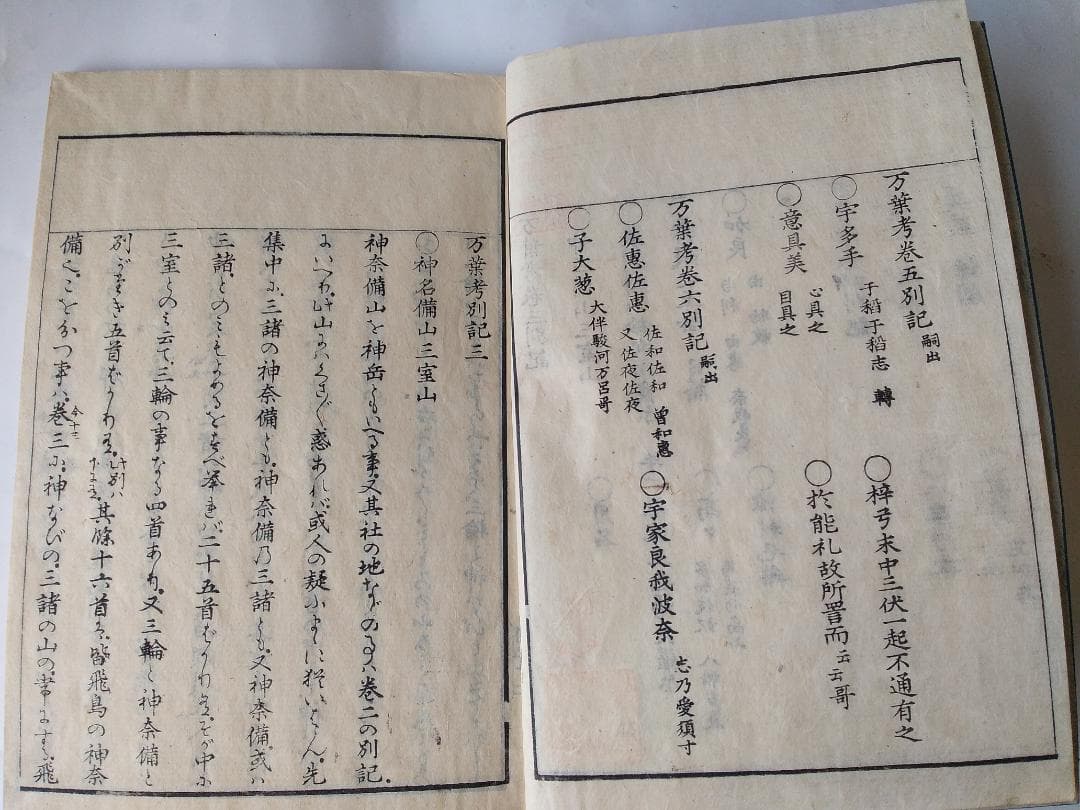 万葉考巻五別記 嗣出
○宇多手 干稻干稻志 轉 ○梓弓末中三伏一起不通有之
○意具美 心具之 目具之 ○於能礼故所詈而 云云哥
万葉考巻六別記 嗣出
○佐惠佐惠 佐和佐和 又佐夜佐夜 曽和惠 ○宇家良我波奈 志乃愛須寸
○子大葱 大伴駿河万呂哥
万葉考別記三
○神名備山三室山
神奈備山を神岳ともいへる事、又其社の地などの事ハ巻二の別記
にいへり、此山にハくさ〲惑あれバ或人の疑ふまに〻いはん、先
集中に、三諸の神奈備とも、神奈備乃三諸とも、又神奈備、或ハ
三諸とのミもよめるをすべ挙れバ二十五首ばかり有、そが中に
三室とのミ云て、三輪の事なる四首あり、又三輪と神奈備と
別がたき五首ばかり有、其餘十六首は、皆飛鳥の神奈
備也、こをわかつ事ハ、巻三 今十三 に、神なびの、三諸の山の、常にすゝ飛